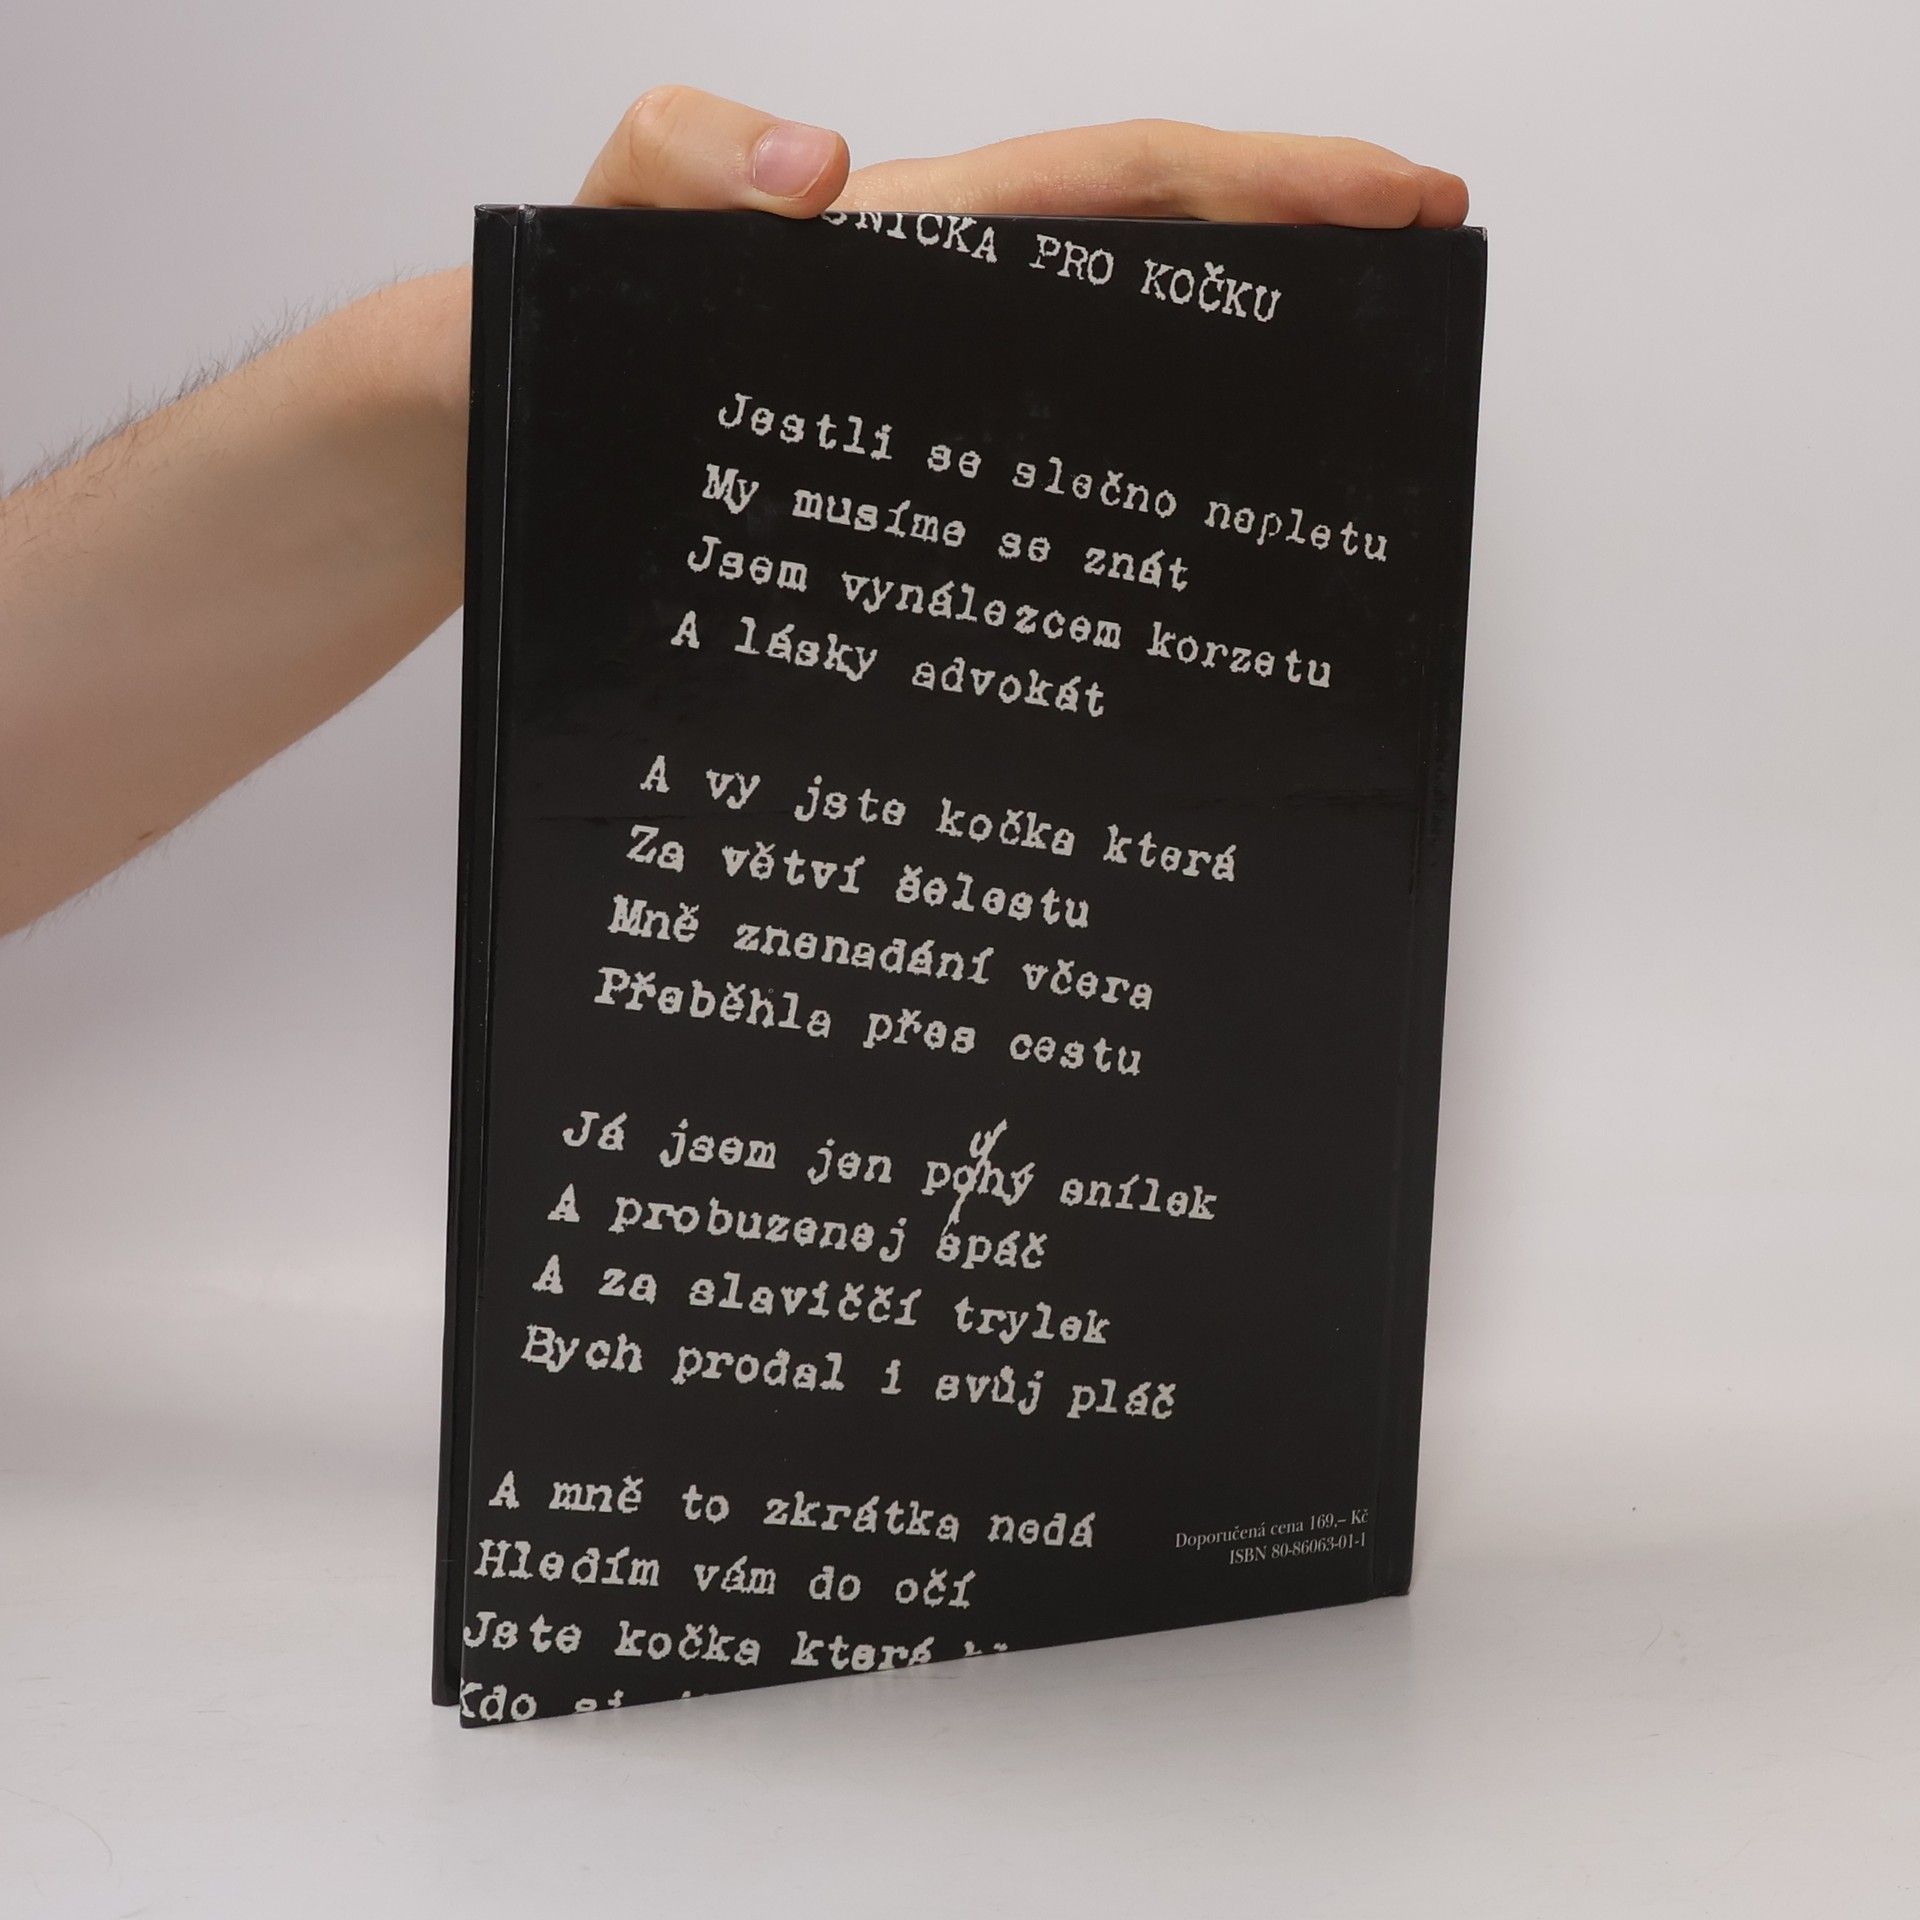 PRO KOČKU
Jestli se slečno nepletu
My musíme se znát
Jsem vynálezcem korzetu
A lásky advokát
A vy jste kočka která
Za větví šelestu
Mně znenadání včera
Přeběhla přes cestu
Já jsem jen pouhý snílek
A probuzenej spáč
A za slaviččí trylek
Bych prodal i svůj pláč
A mně to zkrátka nedá
Hledím vám do očí
Jste kočka která
Kdo si
Doporučená cena 169,– Kč
ISBN 80-86063-01-1